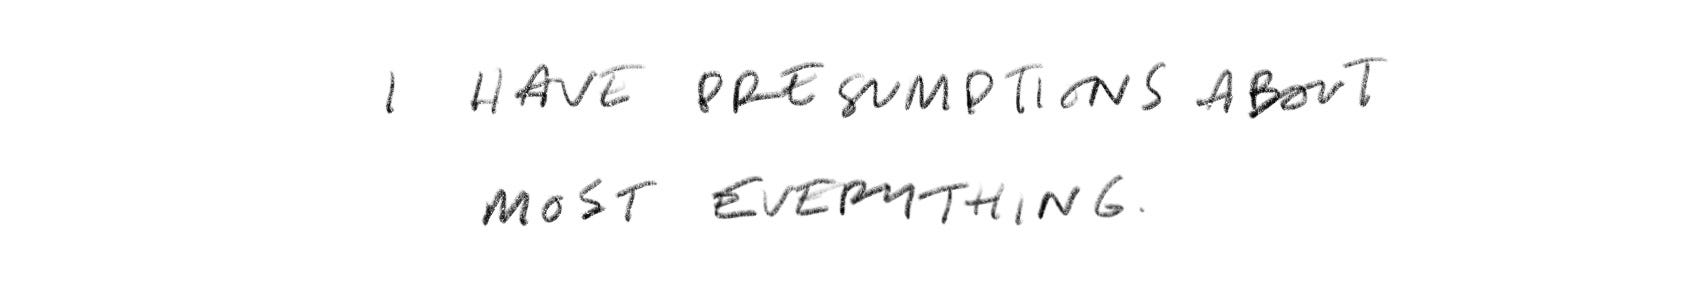 I HAVE PRESUMPTIONS ABOUT
MOST EVERYTHING.